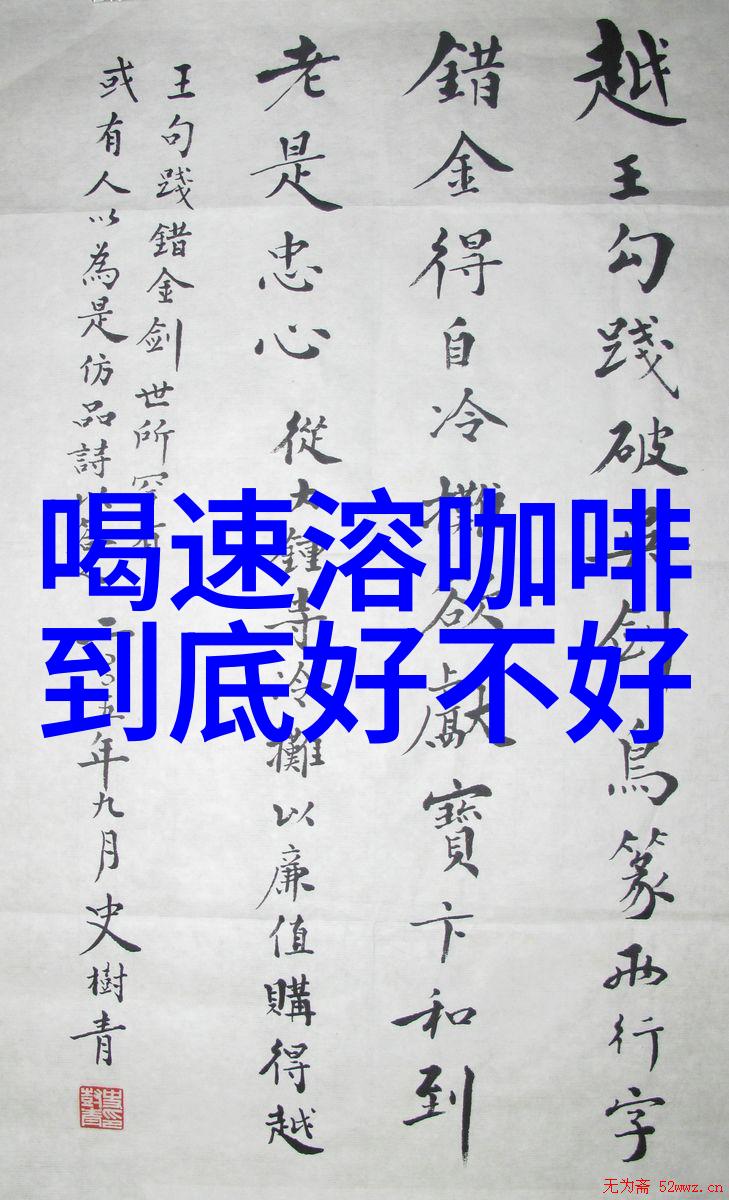 越王勾踐破吳劍鳥篆兩行字
錯金得自冷攤欲獻寶卞和到
老是忠心 從大鍾寺冷攤以廉值購得越
王句踐錯金剑世所
或有人以為是仿品詩以二〇〇五年九月史樹青
喝速溶咖啡
到底好不好
无为斋 52wwz.cn